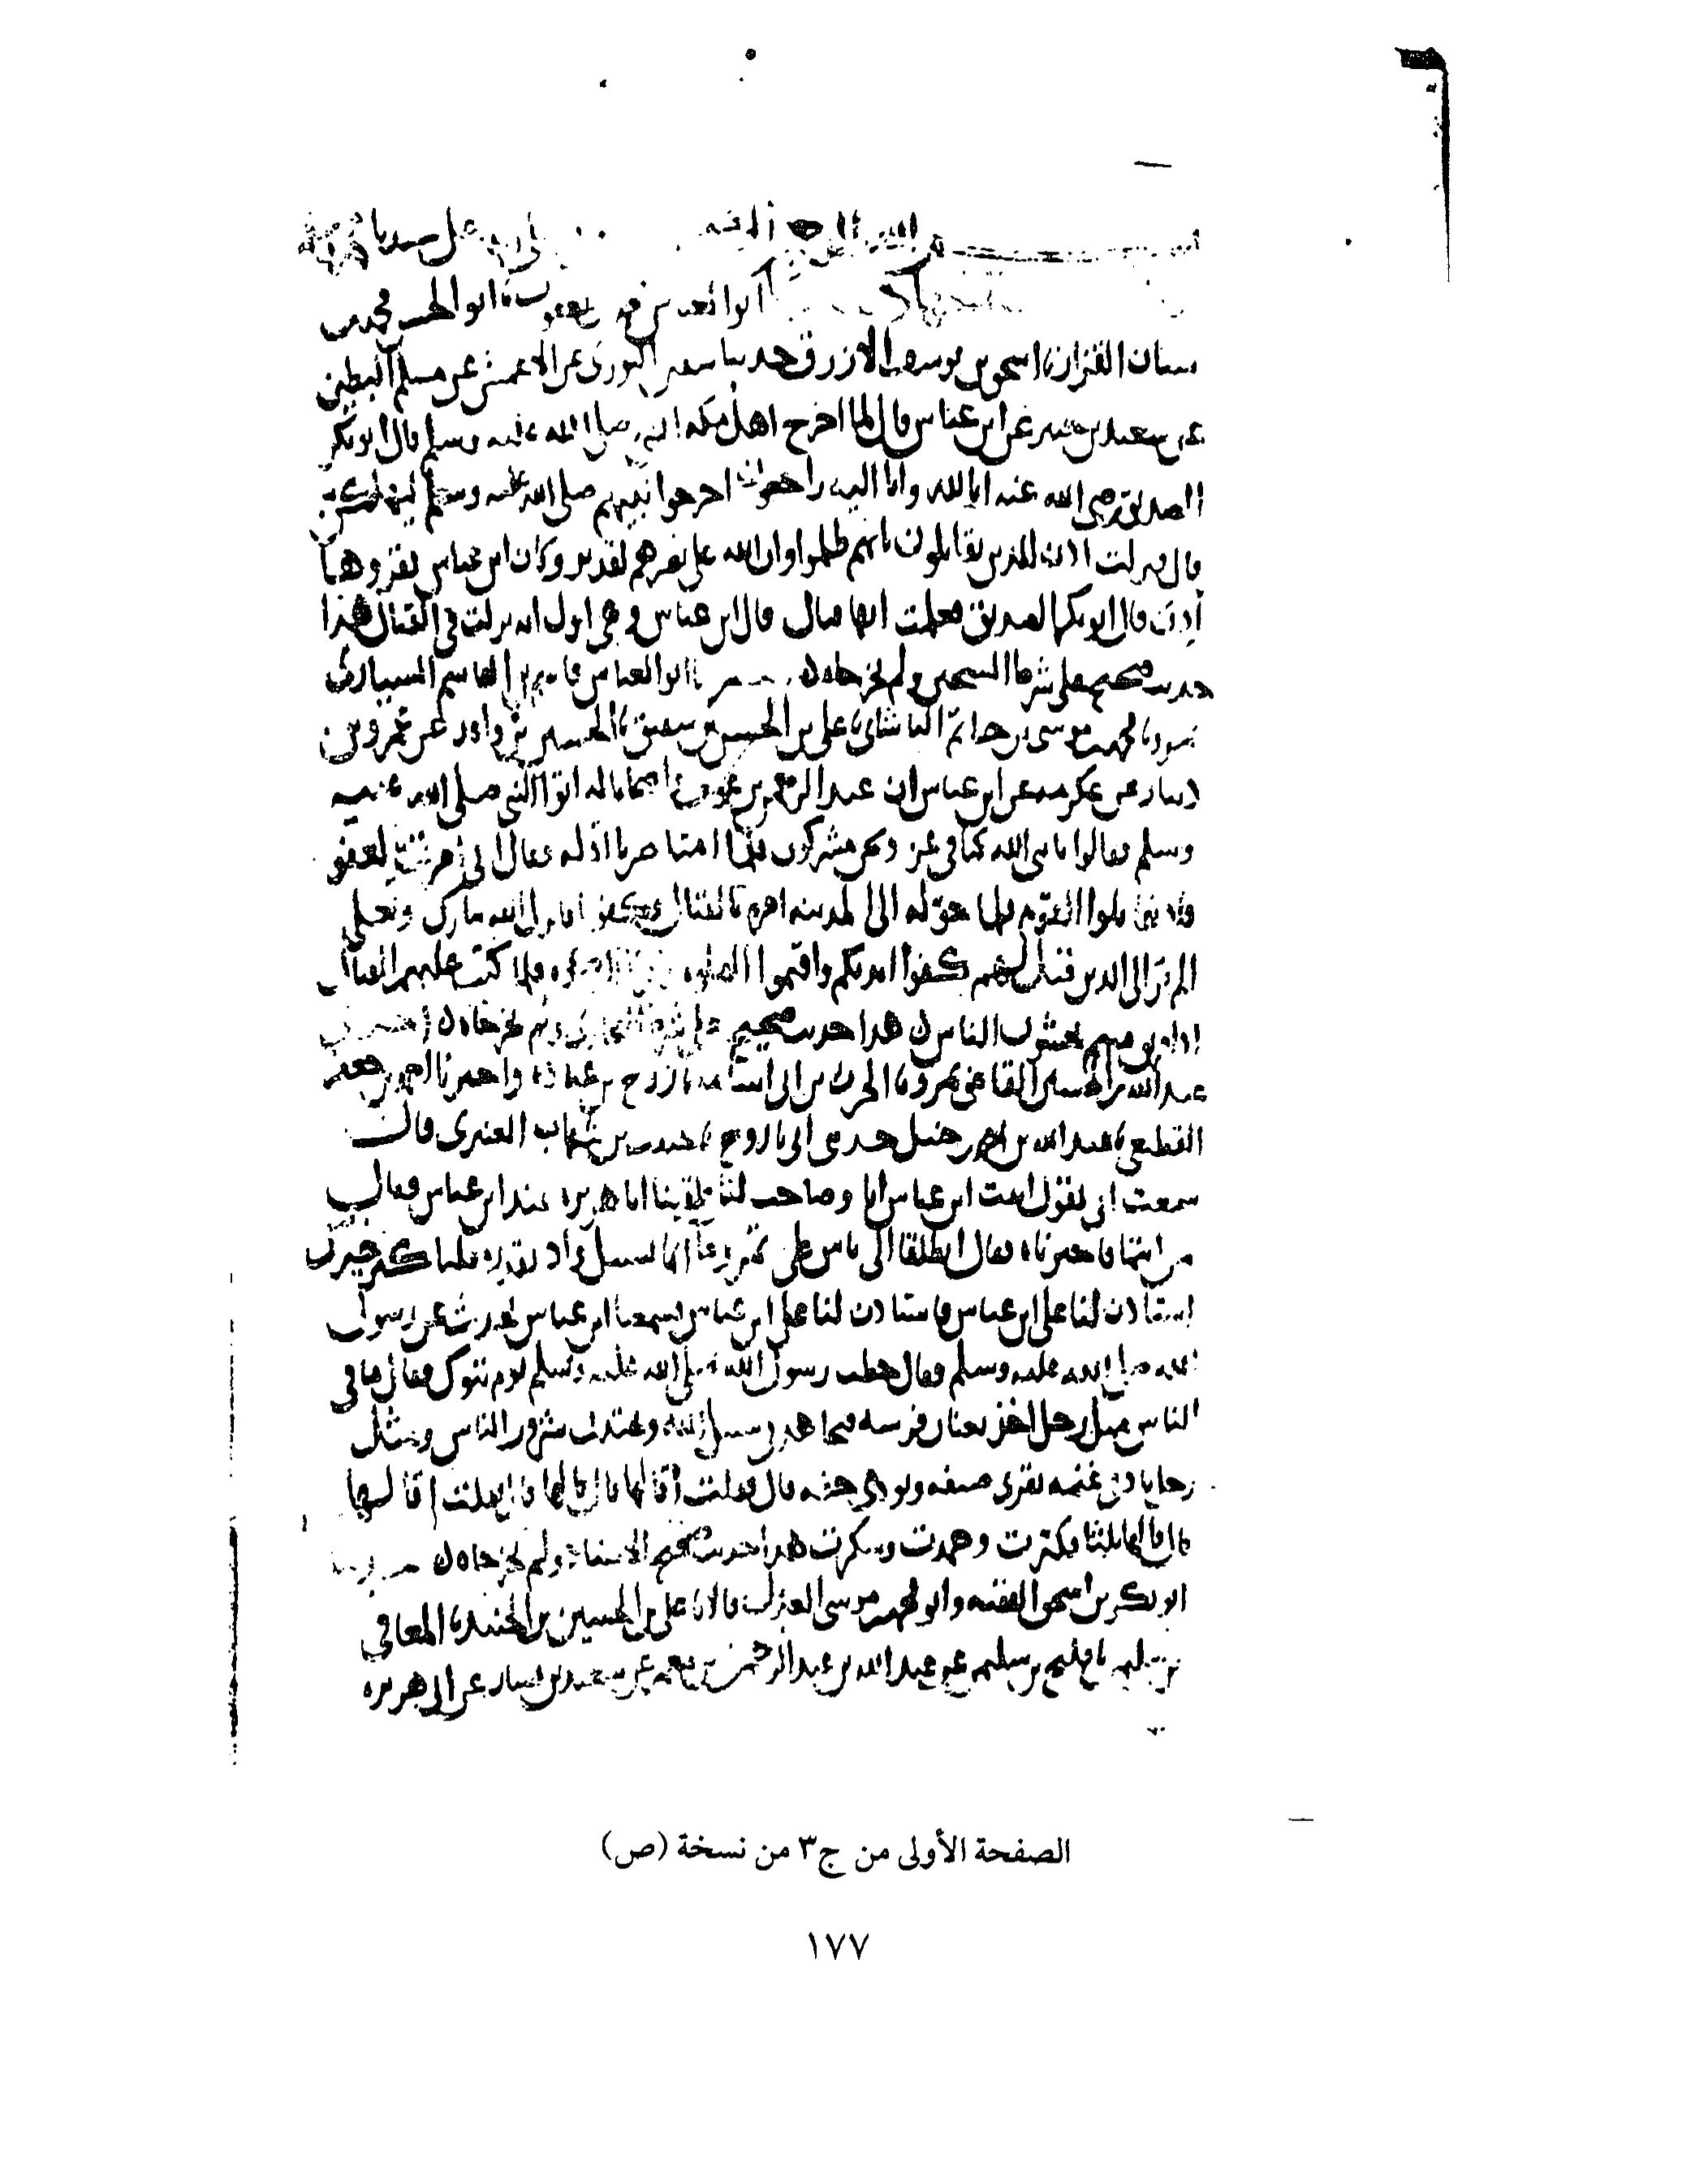 بسم الله الرحمن الرحيم
ابو العباس محمد بن يعقوب نا ابو الحسن محمد بن
سنان القزاز نا اسحق بن يوسف الازرق حدثنا سفين الثورى عن الاعمش عن مسلم البطين
عن سعيد بن جبير عن ابن عباس قال لما اخرج اهل مكه النبى صلى الله عليه وسلم قال ابو بكر
الصديق رضى الله عنه انا لله وانا اليه راجعون اخرجوا نبيهم صلى الله عليه وسلم ليهلكن
قال فنزلت اذن للذين يقاتلون بانهم ظلموا وان الله على نصرهم لقدير وكان ابن عباس يقروها
أذن قال ابو بكر الصديق فعلمت انها قتال قال ابن عباس وهى اول ايه نزلت فى القتال هذا
حديث صحيح على شرط الشيخين ولم يخرجاه ابو العباس قاسم بن القاسم السيارى
بمرو نا محمد بن موسى بن حاتم الباشانى نا على بن الحسن بن شقيق نا الحسين بن واقد عن عمرو بن
دينار عن عكرمه عن ابن عباس ان عبد الرحمن بن عوف واصحابا له اتوا النبى صلى الله عليه
وسلم فقالوا يا نبى الله كنا فى عز ونحن مشركون فلما امنا صرنا اذله فقال انى أمرت بالعفو
فلا تقاتلوا القوم فلما حوله الى المدينه امره بالقتال فكفوا فانزل الله تبارك وتعلى
الم تر الى الذين قيل لهم كفوا ايديكم واقيموا الصلوه فلما كتب عليهم القتال
اذا فريق منهم يخشون الناس هذا حديث صحيح على شرط البخارى ولم يخرجاه
عبد الله بن الحسين القاضى بمرو نا الحرث بن ابى اسامه نا روح بن عباده واخبرنا احمد بن جعفر
القطيعى نا عبد الله بن احمد بن حنبل حدثنى ابى نا روح نا حبيب بن شهاب العنبرى قال
سمعت ابى يقول اتيت ابن عباس انا وصاحب لنا فلقينا ابا هريره عند ابن عباس فقال
من انتما فاخبرناه فقال انطلقا الى ناس على تمر وماء انما يسيل واد بقدره قلنا كثر خيرك
استاذن لنا على ابن عباس فاستاذن لنا على ابن عباس فسمعنا ابن عباس يحدث عن رسول
الله صلى الله عليه وسلم فقال خطب رسول الله صلى الله عليه وسلم يوم تبوك فقال ما فى
الناس مثل رجل اخذ بعنان فرسه فيجاهد فى سبيل الله ويجتنب شرور الناس ومثل
رجل باد فى غنمه يقرى ضيفه ويودى حقه قال قلت أقالها قال قالها قال قلت اقالها
قال قالها ثلثا فكبرت وحمدت وشكرت هذا حديث صحيح الاسناد ولم يخرجاه
ابو بكر بن اسحق الفقيه وابو محمد بن موسى العدل قالا نا على بن الحسين بن الجنيد نا المعافى
بن سليمن نا فليح بن سليمن عن عبد الله بن عبد الرحمن بن معمر عن سعيد بن يسار عن ابى هريره
الصفحة الأولى من ج٣ من نسخة (ص)
١٧٧